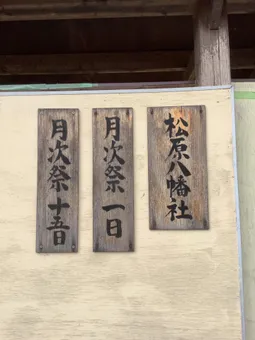 松原八幡社
月次祭 一日
月次祭 十五日